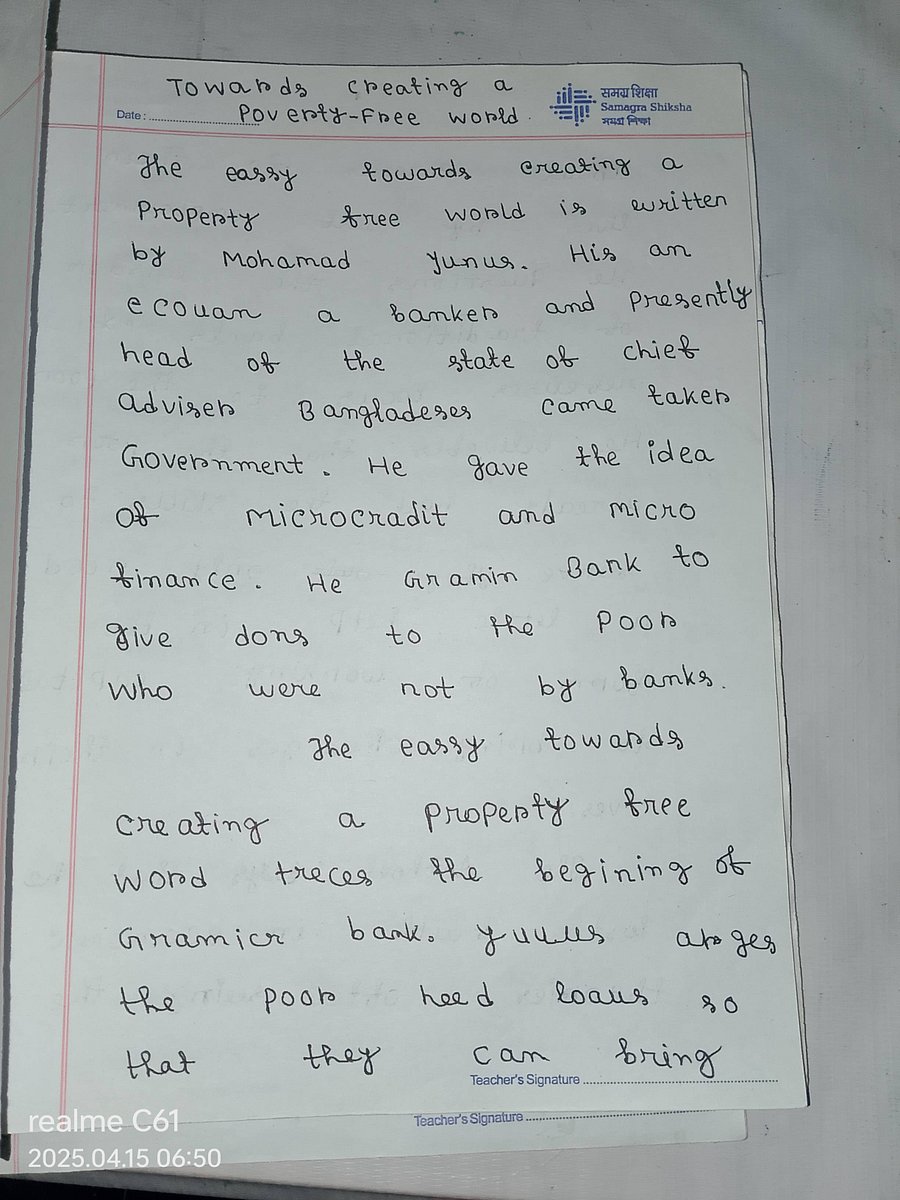 Towards creating a
समग्र शिक्षा
Samagra Shiksha
Date: Poverty-Free world.
The eassy towards creating a
Property free world is written
by Mohamad Yunus. His an
ecouan a banker and presently
head of the state of chief
adviser Bangladeses came taker
Government. He gave the idea
of microcradit and micro
finance. He Gramin Bank to
give dons to the poor
who were not by banks.
The eassy towards
creating a property free
word treces the begining of
Gramicr bank. Yuuus arges
the poor heed loaus so
that they can bring
Teacher's Signature
Teacher's Signature
realme C61
2025.04.15 06:50